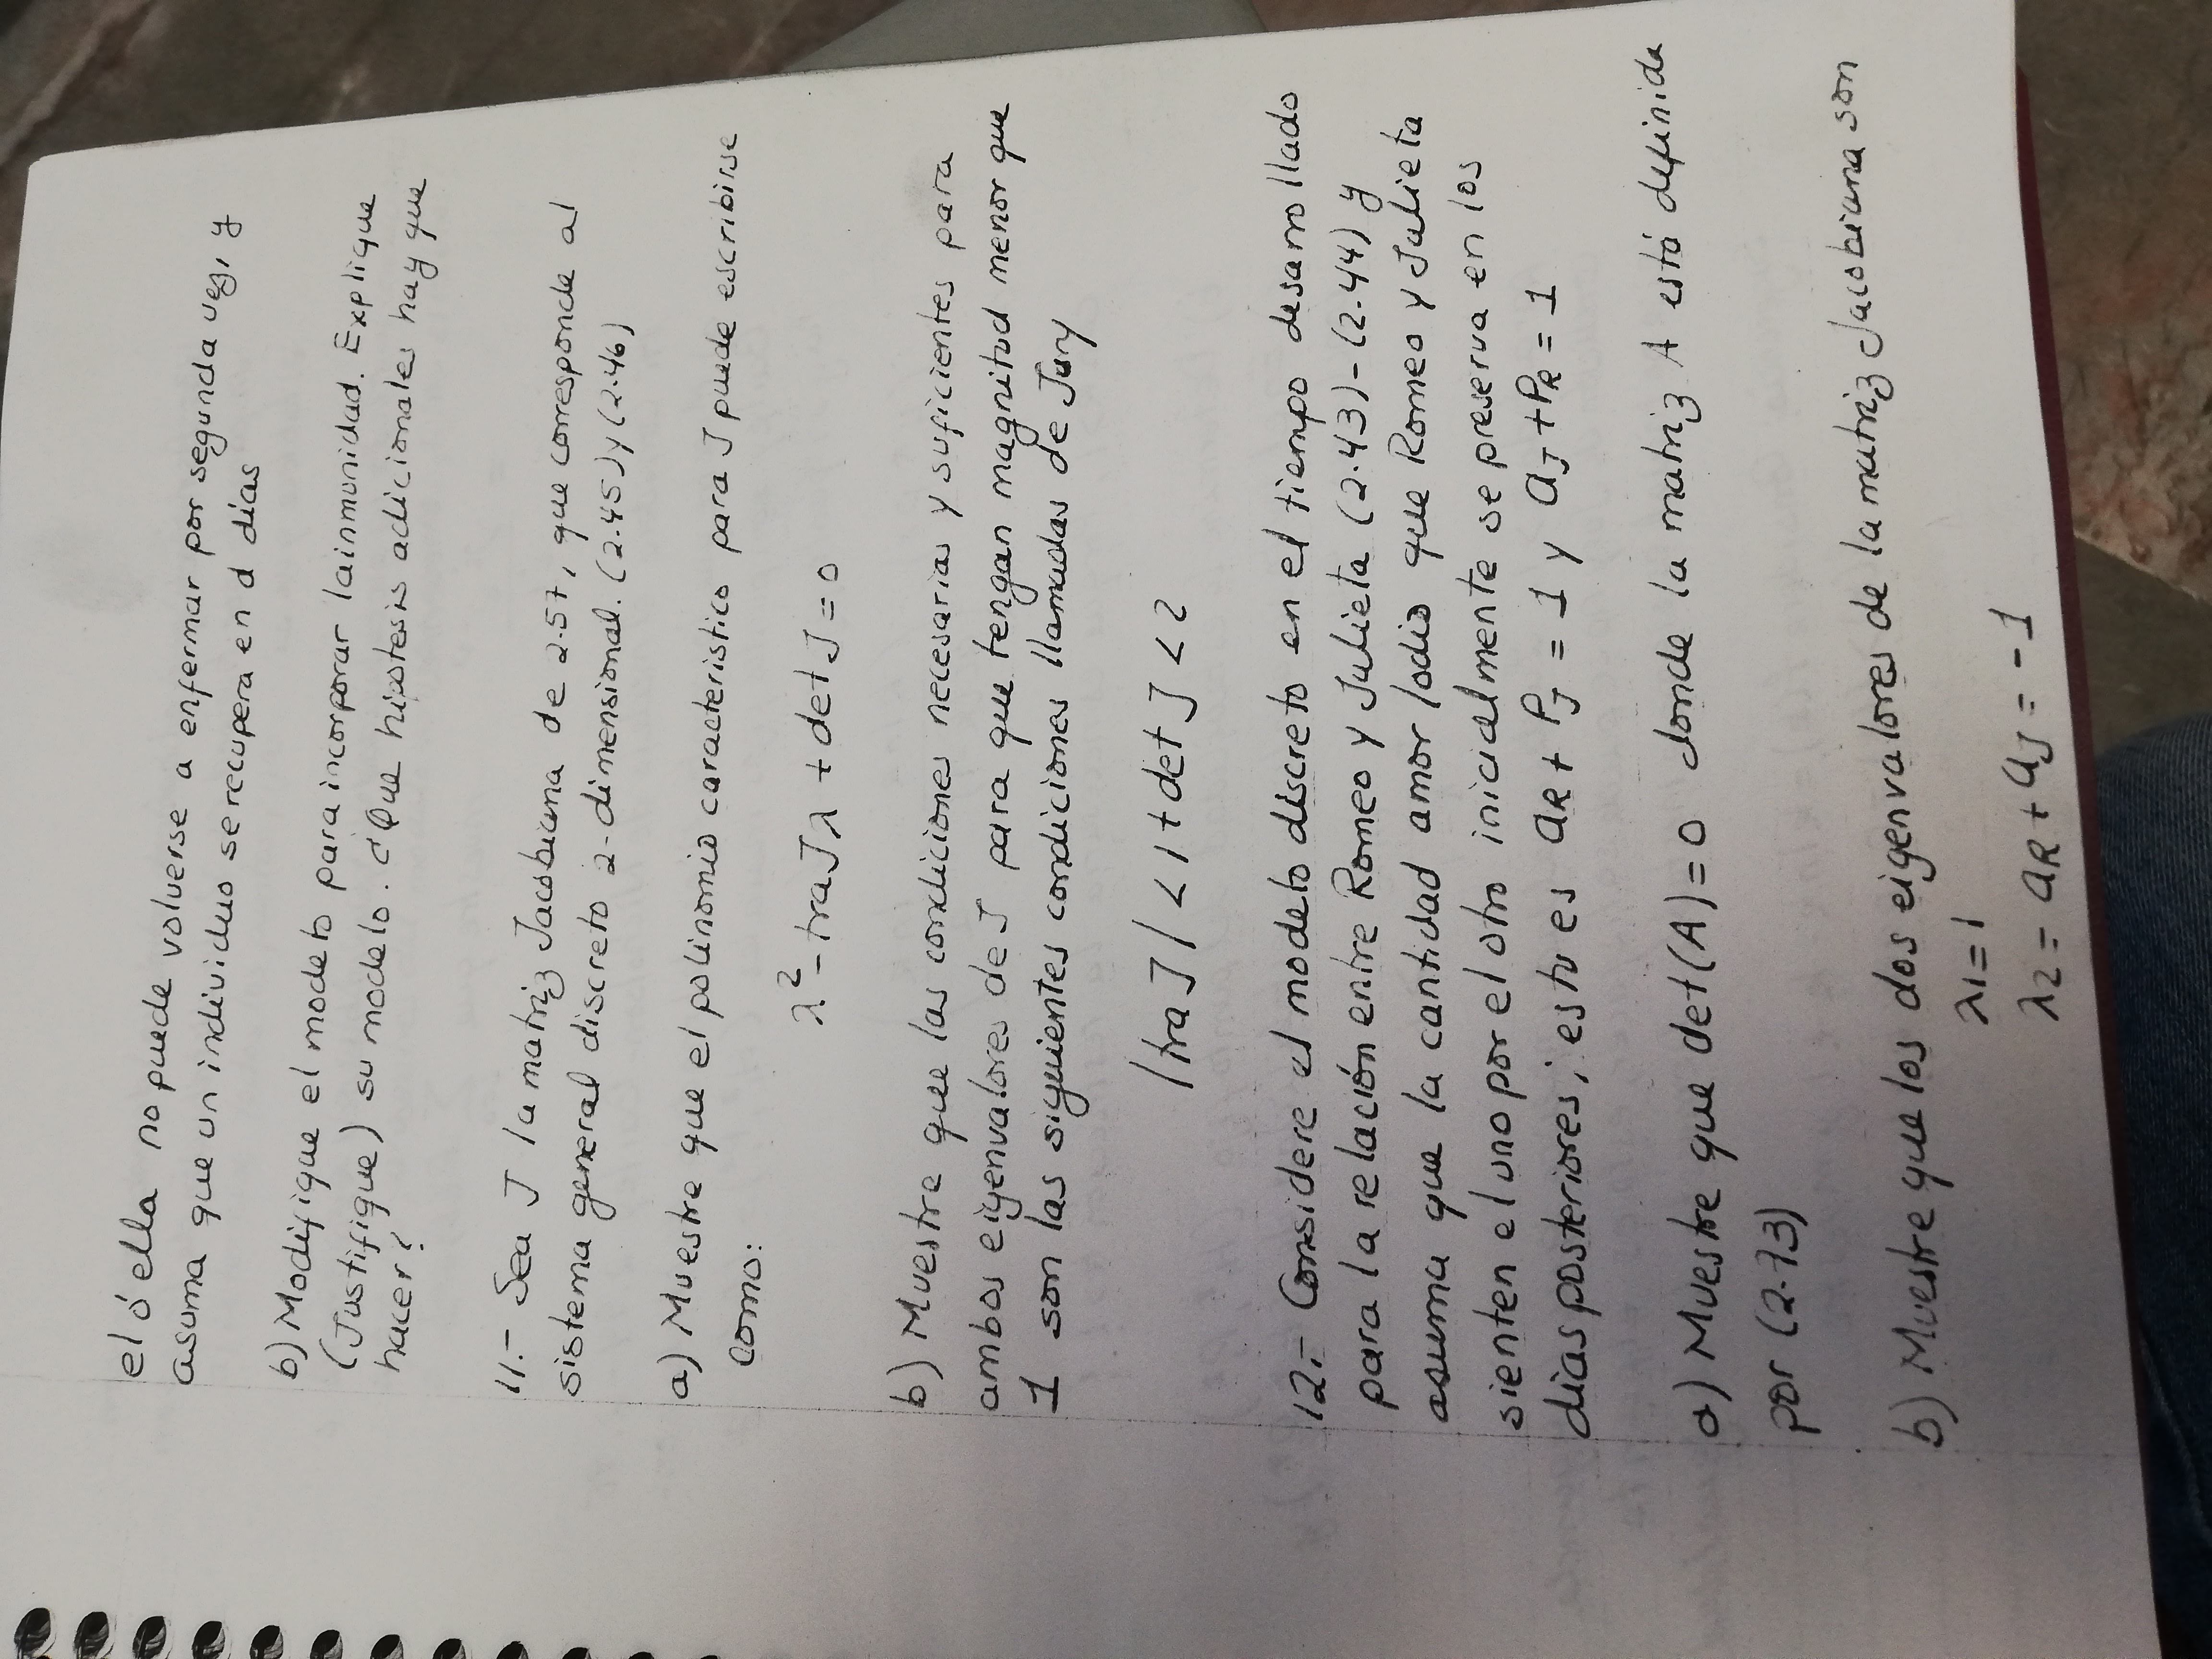 el ó ella no puede volverse a enfermar por segunda vez, y
asuma que un individuo se recupera en d días
b) Modifique el modelo para incorporar la inmunidad. Explique
(Justifique) su modelo. ¿Que hipotesis adicionales hay que
hacer?
11.- Sea J la matriz Jacobiana de 2.57, que corresponde al
sistema general discreto 2-dimensional. (2.45) y (2.46)
a) Muestre que el polinomio caracteristico para J puede escribirse
como:
λ² - traJλ + det J = 0
b) Muestre que las condiciones necesarias y suficientes para
ambos eigenvalores de J para que tengan magnitud menor que
1 son las siguientes condiciones llamadas de Jury
|traJ| < 1 + det J < 2
12.- Considere el modelo discreto en el tiempo desarrollado
para la relación entre Romeo y Julieta (2.43)-(2.44) y
asuma que la cantidad amor/odio que Romeo y Julieta
sienten el uno por el otro inicialmente se preserva en los
dias posteriores; esto es aR + PJ = 1 y aJ + PR = 1
a) Muestre que det(A) = 0 donde la matriz A está definida
por (2.73)
b) Muestre que los dos eigenvalores de la matriz Jacobiana son
λ1 = 1
λ2 = aR + aJ = -1